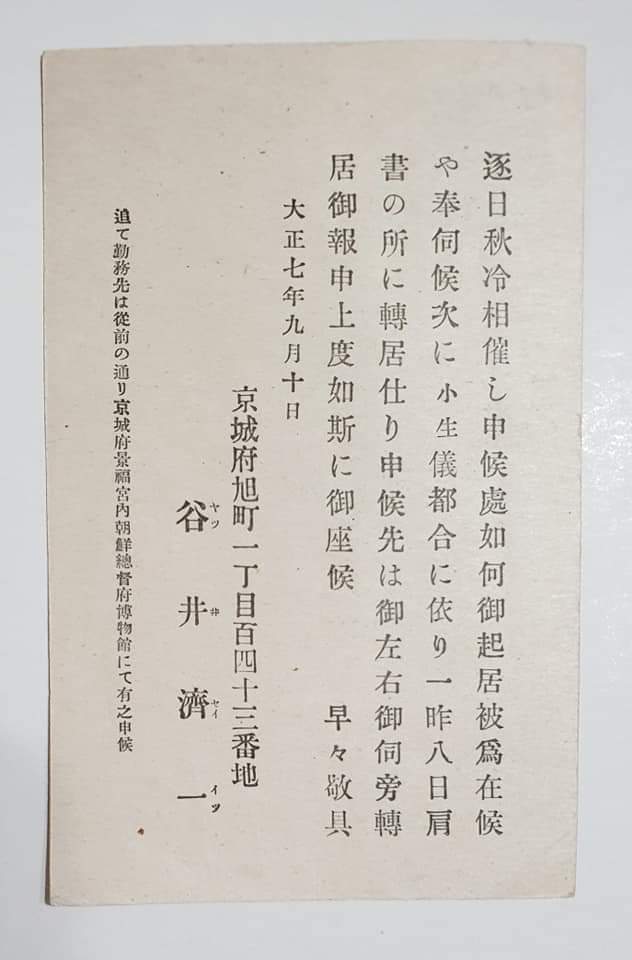 逐日秋冷相催し申候處如何御起居被爲在候
や奉伺候次に小生儀都合に依り一昨八日肩
書の所に轉居仕り申候先は御左右御伺旁轉
居御報申上度如斯に御座候　早々敬具
大正七年九月十日
京城府旭町一丁目百四十三番地
谷井濟一
ヤツ井セイイツ
追て勤務先は從前の通り京城府景福宮內朝鮮總督府博物館にて有之申候